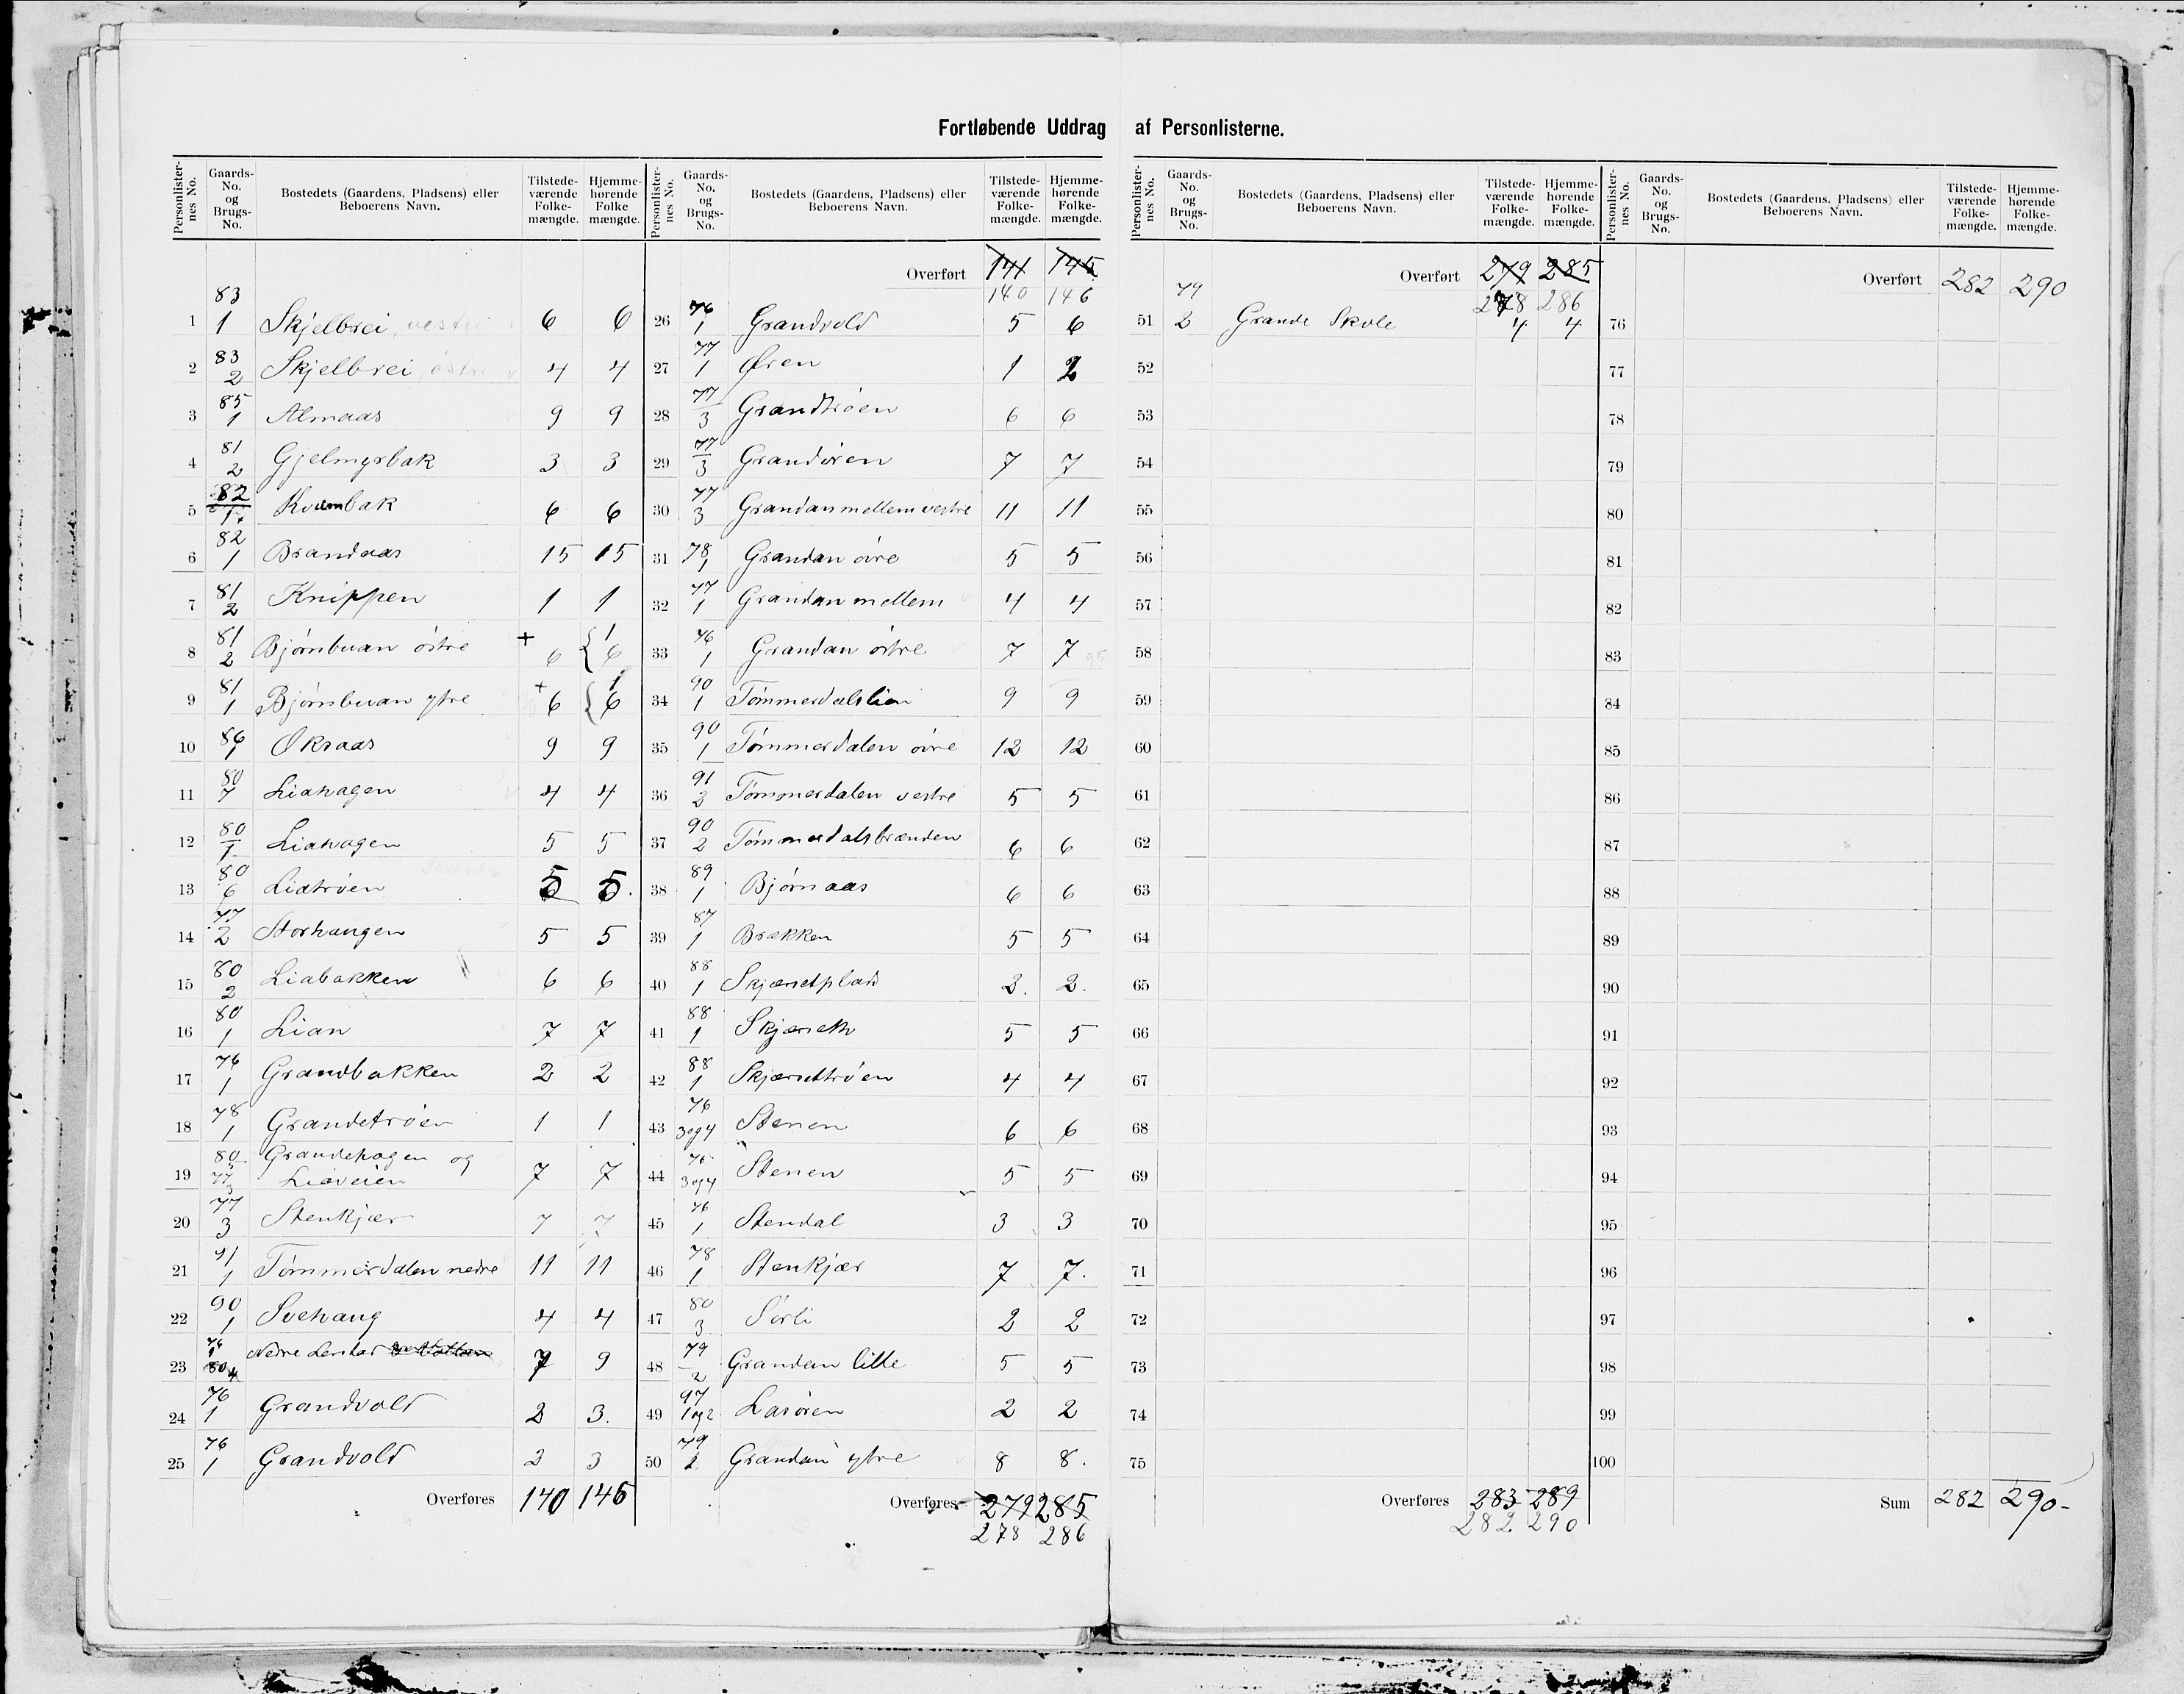 Fortløbende Uddrag af Personlisterne.
Personlisternes No. Gaards-No. og Brugs-No. Bostedets (Gaardens, Pladsens) eller Beboerens Navn. Tilstedeværende Folkemængde. Hjemmehørende Folkemængde.
1 83 1 Skjelbrei, vestre 6 6
2 83 2 Skjelbrei, östre 4 4
3 85 1 Almaas 9 9
4 81 2 Gjelmyrbak 3 3
5 82 1 Kvernbak 6 6
6 82 1 Brandaas 15 15
7 81 2 Knippen 1 1
8 81 2 Bjørnbuan östre + 6 { 1 6
9 81 1 Bjørnbuan ytre + 6 { 1 6
10 86 1 Økraas 9 9
11 80 7 Liahagen 4 4
12 80 1 Liahagen 5 5
13 80 6 Liatrøen 5 5.
14 77 2 Storhaugen 5 5
15 80 2 Liabakken 6 6
16 80 1 Lian 7 7
17 76 1 Grandbakken 2 2
18 78 1 Grandetrøen 1 1
19 80 77 3 Grandehagen og
Liaveien 7 7
20 77 3 Stenkjær 7 7
21 91 1 Tømmerdalen nedre 11 11
22 90 1 Svehaug 4 4
23 76 1 80 4 Nedre 7 9
24 76 1 Grandvold 2 3.
25 76 1 Grandvold 2 3
Overføres 140 146
Personlisternes No. Gaards-No. og Brugs-No. Bostedets (Gaardens, Pladsens) eller Beboerens Navn. Tilstedeværende Folkemængde. Hjemmehørende Folkemængde.
Overført 141 145
140 146
26 76 1 Grandvold 5 6
27 77 1 Øren 1 2
28 77 3 Grandtrøen 6 6
29 77 3 Grandøren 7 7
30 77 3 Grandan mellem vestre 11 11
31 78 1 Grandan øvre 5 5
32 77 1 Grandan mellem 4 4
33 76 1 Grandan östre 7 7
34 90 1 Tømmerdalslien 9 9
35 90 1 Tømmerdalen øvre 12 12
36 91 2 Tømmerdalen vestre 5 5
37 90 2 Tømmerdalsbrænden 6 6
38 89 1 Bjørnaas 6 6
39 87 1 Brækken 5 5
40 88 1 Skjærsetplads 2. 2.
41 88 1 Skjærseth 5 5
42 88 1 Skjærsettrøen 4 4
43 76 3og4 Stenen 6 6
44 76 3og4 Stenen 5 5
45 76 1 Stendal 3 3
46 78 1 Stenkjær 7 7.
47 80 3 Sørli 2 2
48 79 2 Grandem lille 5 5
49 97 1og2 Larøren 2 2
50 79 1 Grandan ytre 8 8.
Overføres 279 285
278 286
Personlisternes No. Gaards-No. og Brugs-No. Bostedets (Gaardens, Pladsens) eller Beboerens Navn. Tilstedeværende Folkemængde. Hjemmehørende Folkemængde.
Overført 279 285
278 286
51 79 2 Grande Skole 4 4
52
53
54
55
56
57
58
59
60
61
62
63
64
65
66
67
68
69
70
71
72
73
74
75
Overføres 283 289
282 290
Personlisternes No. Gaards-No. og Brugs-No. Bostedets (Gaardens, Pladsens) eller Beboerens Navn. Tilstedeværende Folkemængde. Hjemmehørende Folkemængde.
Overført 282 290
76
77
78
79
80
81
82
83
84
85
86
87
88
89
90
91
92
93
94
95
96
97
98
99
100
Sum 282 290-